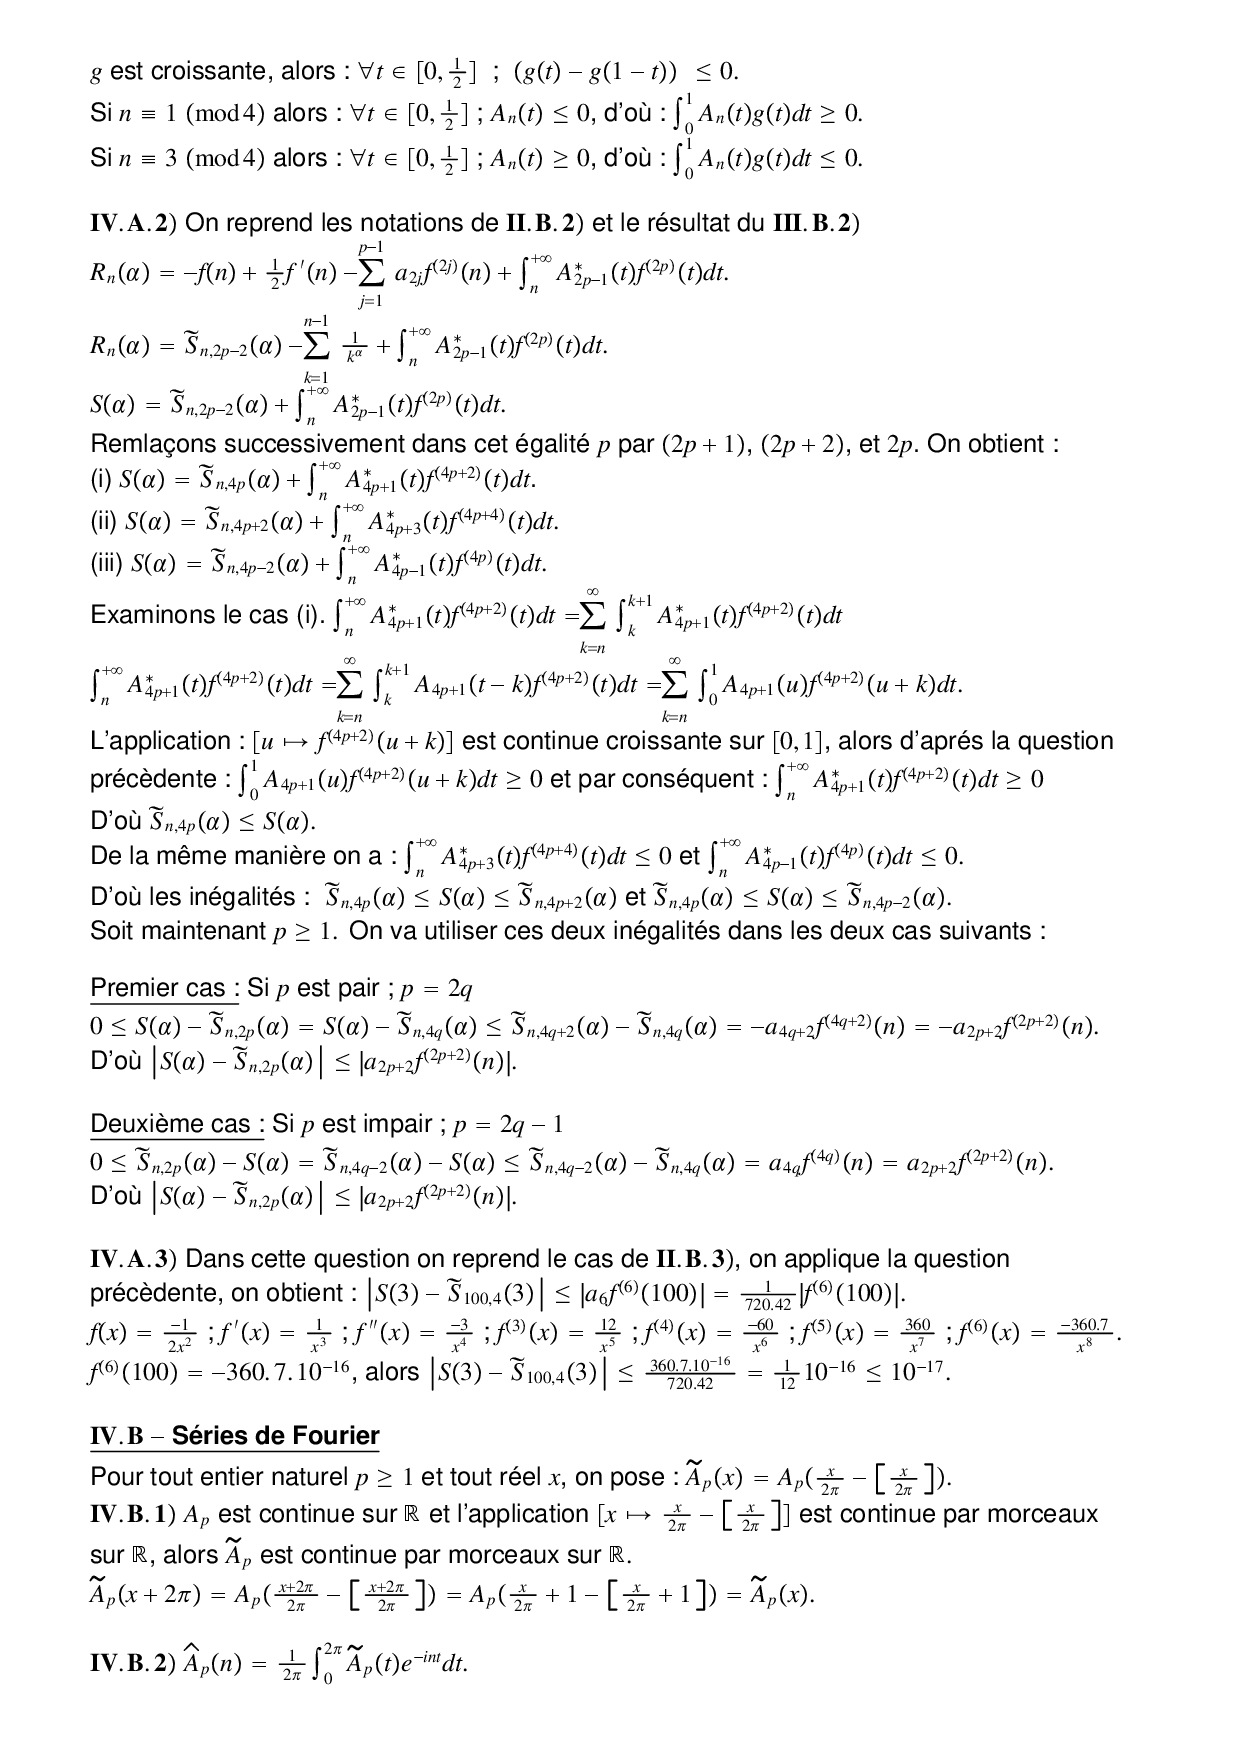 g est croissante, alors : ∀t ∈ [0, 1/2] ; (g(t) – g(1 – t)) ≤ 0.
Si n ≡ 1 (mod 4) alors : ∀t ∈ [0, 1/2] ; Aₙ(t) ≤ 0, d'où : ∫₀¹ Aₙ(t)g(t)dt ≥ 0.
Si n ≡ 3 (mod 4) alors : ∀t ∈ [0, 1/2] ; Aₙ(t) ≥ 0, d'où : ∫₀¹ Aₙ(t)g(t)dt ≤ 0.
IV.A.2) On reprend les notations de II.B.2) et le résultat du III.B.2)
R_n(α) = –f(n) + 1/2 f ′(n) – ∑_{j=1}^{p–1} a_{2j}f^{(2j)}(n) + ∫_n^{+∞} A*_{2p–1}(t)f^{(2p)}(t)dt.
R_n(α) = S̃_{n,2p–2}(α) – ∑_{k=1}^{n–1} 1/k^α + ∫_n^{+∞} A*_{2p–1}(t)f^{(2p)}(t)dt.
S(α) = S̃_{n,2p–2}(α) + ∫_n^{+∞} A*_{2p–1}(t)f^{(2p)}(t)dt.
Remlaçons successivement dans cet égalité p par (2p + 1), (2p + 2), et 2p. On obtient :
(i) S(α) = S̃_{n,4p}(α) + ∫_n^{+∞} A*_{4p+1}(t)f^{(4p+2)}(t)dt.
(ii) S(α) = S̃_{n,4p+2}(α) + ∫_n^{+∞} A*_{4p+3}(t)f^{(4p+4)}(t)dt.
(iii) S(α) = S̃_{n,4p–2}(α) + ∫_n^{+∞} A*_{4p–1}(t)f^{(4p)}(t)dt.
Examinons le cas (i). ∫_n^{+∞} A*_{4p+1}(t)f^{(4p+2)}(t)dt = ∑_{k=n}^{∞} ∫_k^{k+1} A*_{4p+1}(t)f^{(4p+2)}(t)dt
∫_n^{+∞} A*_{4p+1}(t)f^{(4p+2)}(t)dt = ∑_{k=n}^{∞} ∫_k^{k+1} A_{4p+1}(t – k)f^{(4p+2)}(t)dt = ∑_{k=n}^{∞} ∫_0^1 A_{4p+1}(u)f^{(4p+2)}(u + k)dt.
L'application : [u ↦ f^{(4p+2)}(u + k)] est continue croissante sur [0, 1], alors d'aprés la question
précèdente : ∫_0^1 A_{4p+1}(u)f^{(4p+2)}(u + k)dt ≥ 0 et par conséquent : ∫_n^{+∞} A*_{4p+1}(t)f^{(4p+2)}(t)dt ≥ 0
D'où S̃_{n,4p}(α) ≤ S(α).
De la même manière on a : ∫_n^{+∞} A*_{4p+3}(t)f^{(4p+4)}(t)dt ≤ 0 et ∫_n^{+∞} A*_{4p–1}(t)f^{(4p)}(t)dt ≤ 0.
D'où les inégalités : S̃_{n,4p}(α) ≤ S(α) ≤ S̃_{n,4p+2}(α) et S̃_{n,4p}(α) ≤ S(α) ≤ S̃_{n,4p–2}(α).
Soit maintenant p ≥ 1. On va utiliser ces deux inégalités dans les deux cas suivants :
Premier cas : Si p est pair ; p = 2q
0 ≤ S(α) – S̃_{n,2p}(α) = S(α) – S̃_{n,4q}(α) ≤ S̃_{n,4q+2}(α) – S̃_{n,4q}(α) = –a_{4q+2}f^{(4q+2)}(n) = –a_{2p+2}f^{(2p+2)}(n).
D'où |S(α) – S̃_{n,2p}(α)| ≤ |a_{2p+2}f^{(2p+2)}(n)|.
Deuxième cas : Si p est impair ; p = 2q – 1
0 ≤ S̃_{n,2p}(α) – S(α) = S̃_{n,4q–2}(α) – S(α) ≤ S̃_{n,4q–2}(α) – S̃_{n,4q}(α) = a_{4q}f^{(4q)}(n) = a_{2p+2}f^{(2p+2)}(n).
D'où |S(α) – S̃_{n,2p}(α)| ≤ |a_{2p+2}f^{(2p+2)}(n)|.
IV.A.3) Dans cette question on reprend le cas de II.B.3), on applique la question
précèdente, on obtient : |S(3) – S̃_{100,4}(3)| ≤ |a_6 f^{(6)}(100)| = 1/720.42 |f^{(6)}(100)|.
f(x) = –1/2x² ; f ′(x) = 1/x³ ; f ″(x) = –3/x⁴ ; f^{(3)}(x) = 12/x⁵ ; f^{(4)}(x) = –60/x⁶ ; f^{(5)}(x) = 360/x⁷ ; f^{(6)}(x) = –360.7/x⁸ .
f^{(6)}(100) = –360.7.10^{–16}, alors |S(3) – S̃_{100,4}(3)| ≤ 360.7.10^{–16}/720.42 = 1/12 10^{–16} ≤ 10^{–17}.
IV.B – Séries de Fourier
Pour tout entier naturel p ≥ 1 et tout réel x, on pose : Ã_p(x) = A_p(x/2π – [x/2π]).
IV.B.1) A_p est continue sur ℝ et l'application [x ↦ x/2π – [x/2π]] est continue par morceaux
sur ℝ, alors Ã_p est continue par morceaux sur ℝ.
Ã_p(x + 2π) = A_p(x+2π/2π – [x+2π/2π]) = A_p(x/2π + 1 – [x/2π + 1]) = Ã_p(x).
IV.B.2) Â_p(n) = 1/2π ∫_0^{2π} Ã_p(t)e^{–int}dt.